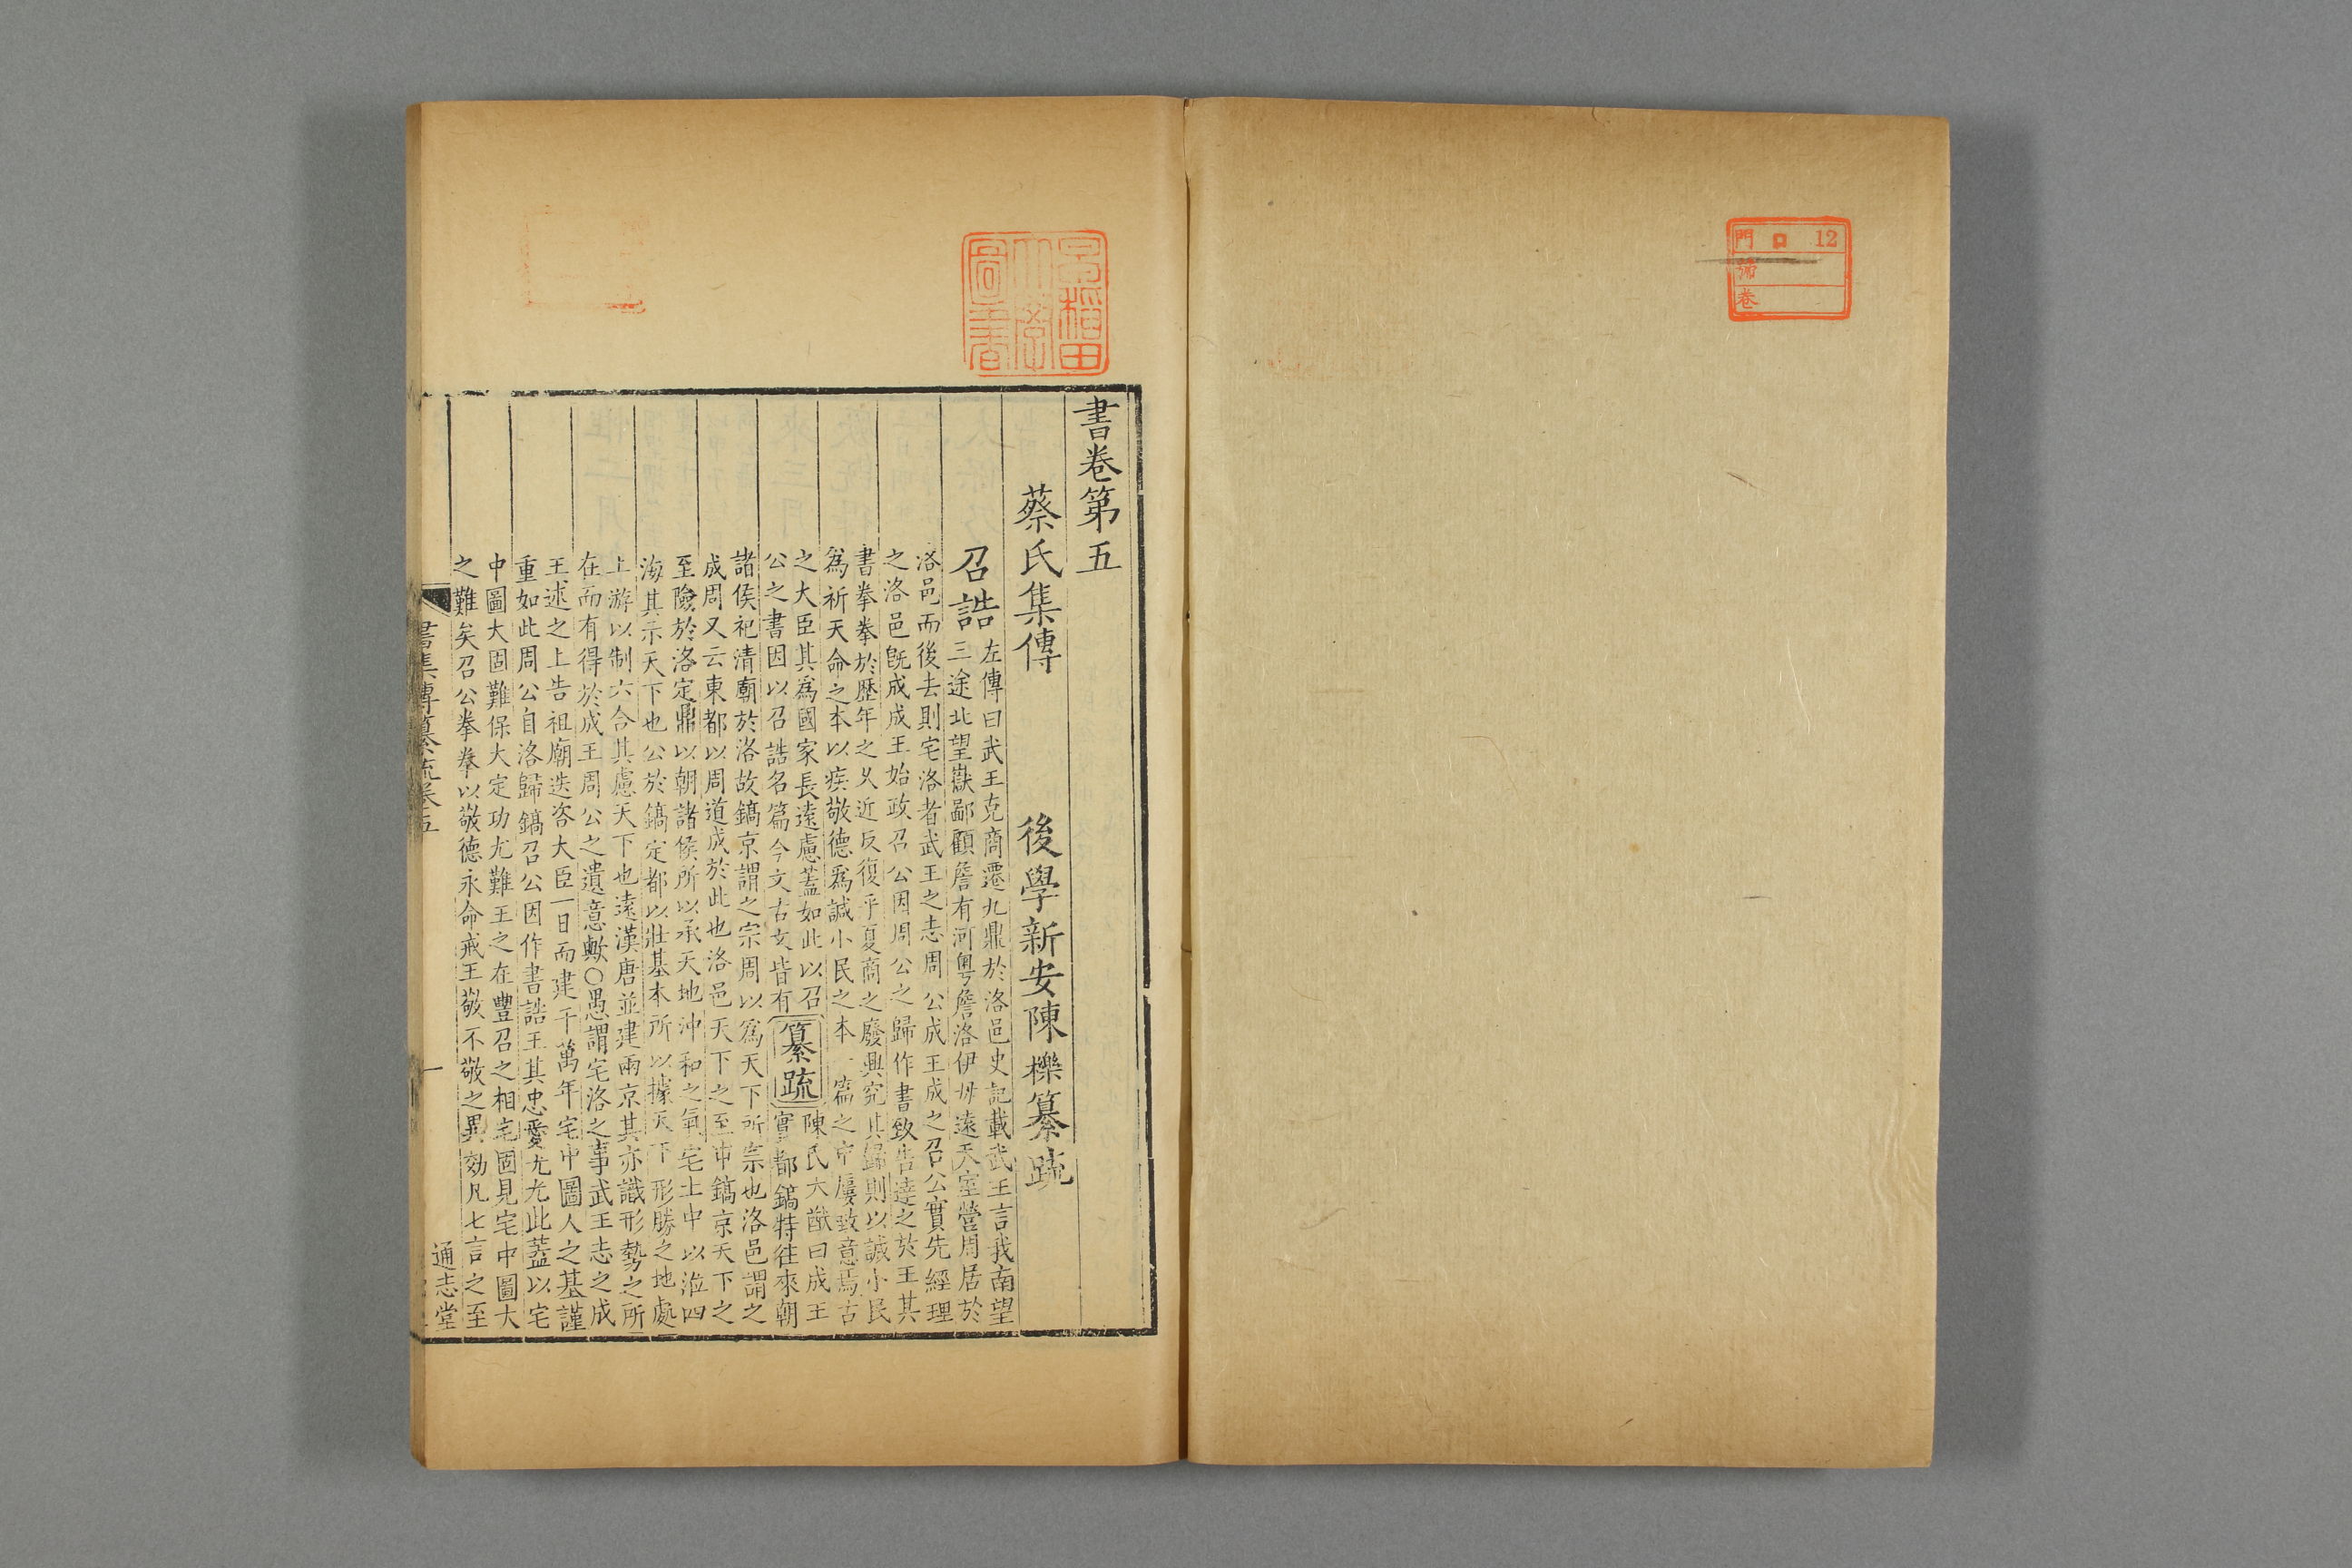 門 口 12
號
卷
早稲田大學圖書
書卷第五
蔡氏集傳 後學新安陳櫟纂疏
召誥
左傳曰武王克商遷九鼎於洛邑史記載武王言我南望
三途北望嶽鄙顧詹有河粵詹洛伊毋遠天室營周居於
洛邑而後去則宅洛者武王之志周公成王成之召公實先經理
之洛邑旣成成王始政召公因周公之歸作書致告達之於王其
書拳拳於歷年之久近反復乎夏商之廢興究其歸則以諴小民
爲祈天命之本以疾敬德爲諴小民之本一篇之中屢致意焉古
之大臣其爲國家長遠慮蓋如此以召
公之書因以召誥名篇今文古文皆有
纂疏
陳氏大猷曰成王
實都鎬特往來朝
諸侯祀清廟於洛故鎬京謂之宗周以爲天下所宗也洛邑謂之
成周又云東都以周道成於此也洛邑天下之至中鎬京天下之
至險於洛定鼎以朝諸侯所以承天地沖和之氣宅土中以涖四
海其示天下也公於鎬定都以壯基本所以據天下形勝之地處
上游以制六合其慮天下也遠漢唐並建兩京其亦識形勢之所
在而有得於成王周公之遺意歟○愚謂宅洛之事武王志之成
王述之上告祖廟迭咨大臣一日而建千萬年宅中圖人之基謹
重如此周公自洛歸鎬召公因作書誥王其忠愛尤尤此蓋以宅
中圖大固難保大定功尤難王之在豐召之相宅固見宅中圖大
之難矣召公拳拳以敬德永命戒王敬不敬之異効凡七言之至
書集傳纂疏卷五 一 通志堂